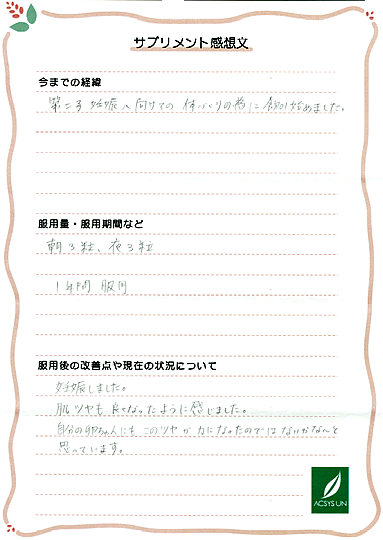 サプリメント感想文
今までの経緯
第二子 妊娠へ向けての 体づくりの為に 飲み始めました。
服用量・服用期間など
朝3粒、夜3粒
1年間 服用
服用後の改善点や現在の状況について
妊娠しました。
肌ツヤも 良くなったように感じました。
自分の卵ちゃんにも このツヤが 力になったのでは ないかなんと
思っています。
ACSYSUN